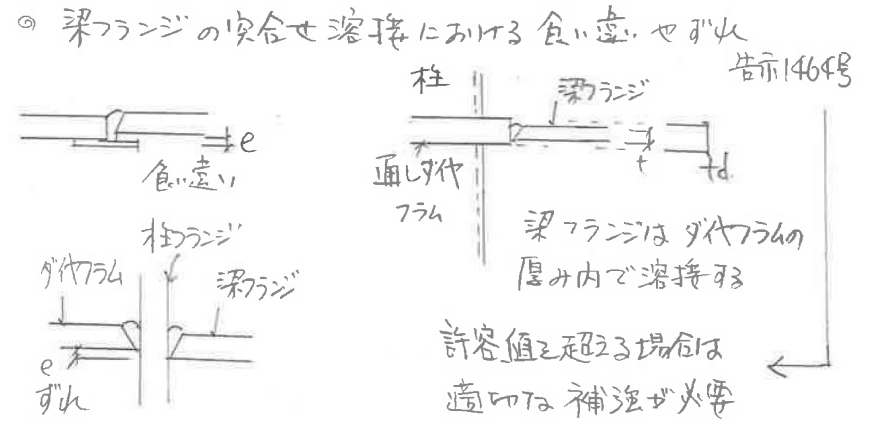 ◎ 梁フランジの突合せ溶接における食い違いやずれ
告示1464号
柱
梁フランジ
e
食い違い
通しダイヤ
フラム
t
td
梁フランジは ダイヤフラムの
厚み内で溶接する
柱フランジ
ダイヤフラム
梁フランジ
e
ずれ
許容値を超える場合は
適切な補強が必要